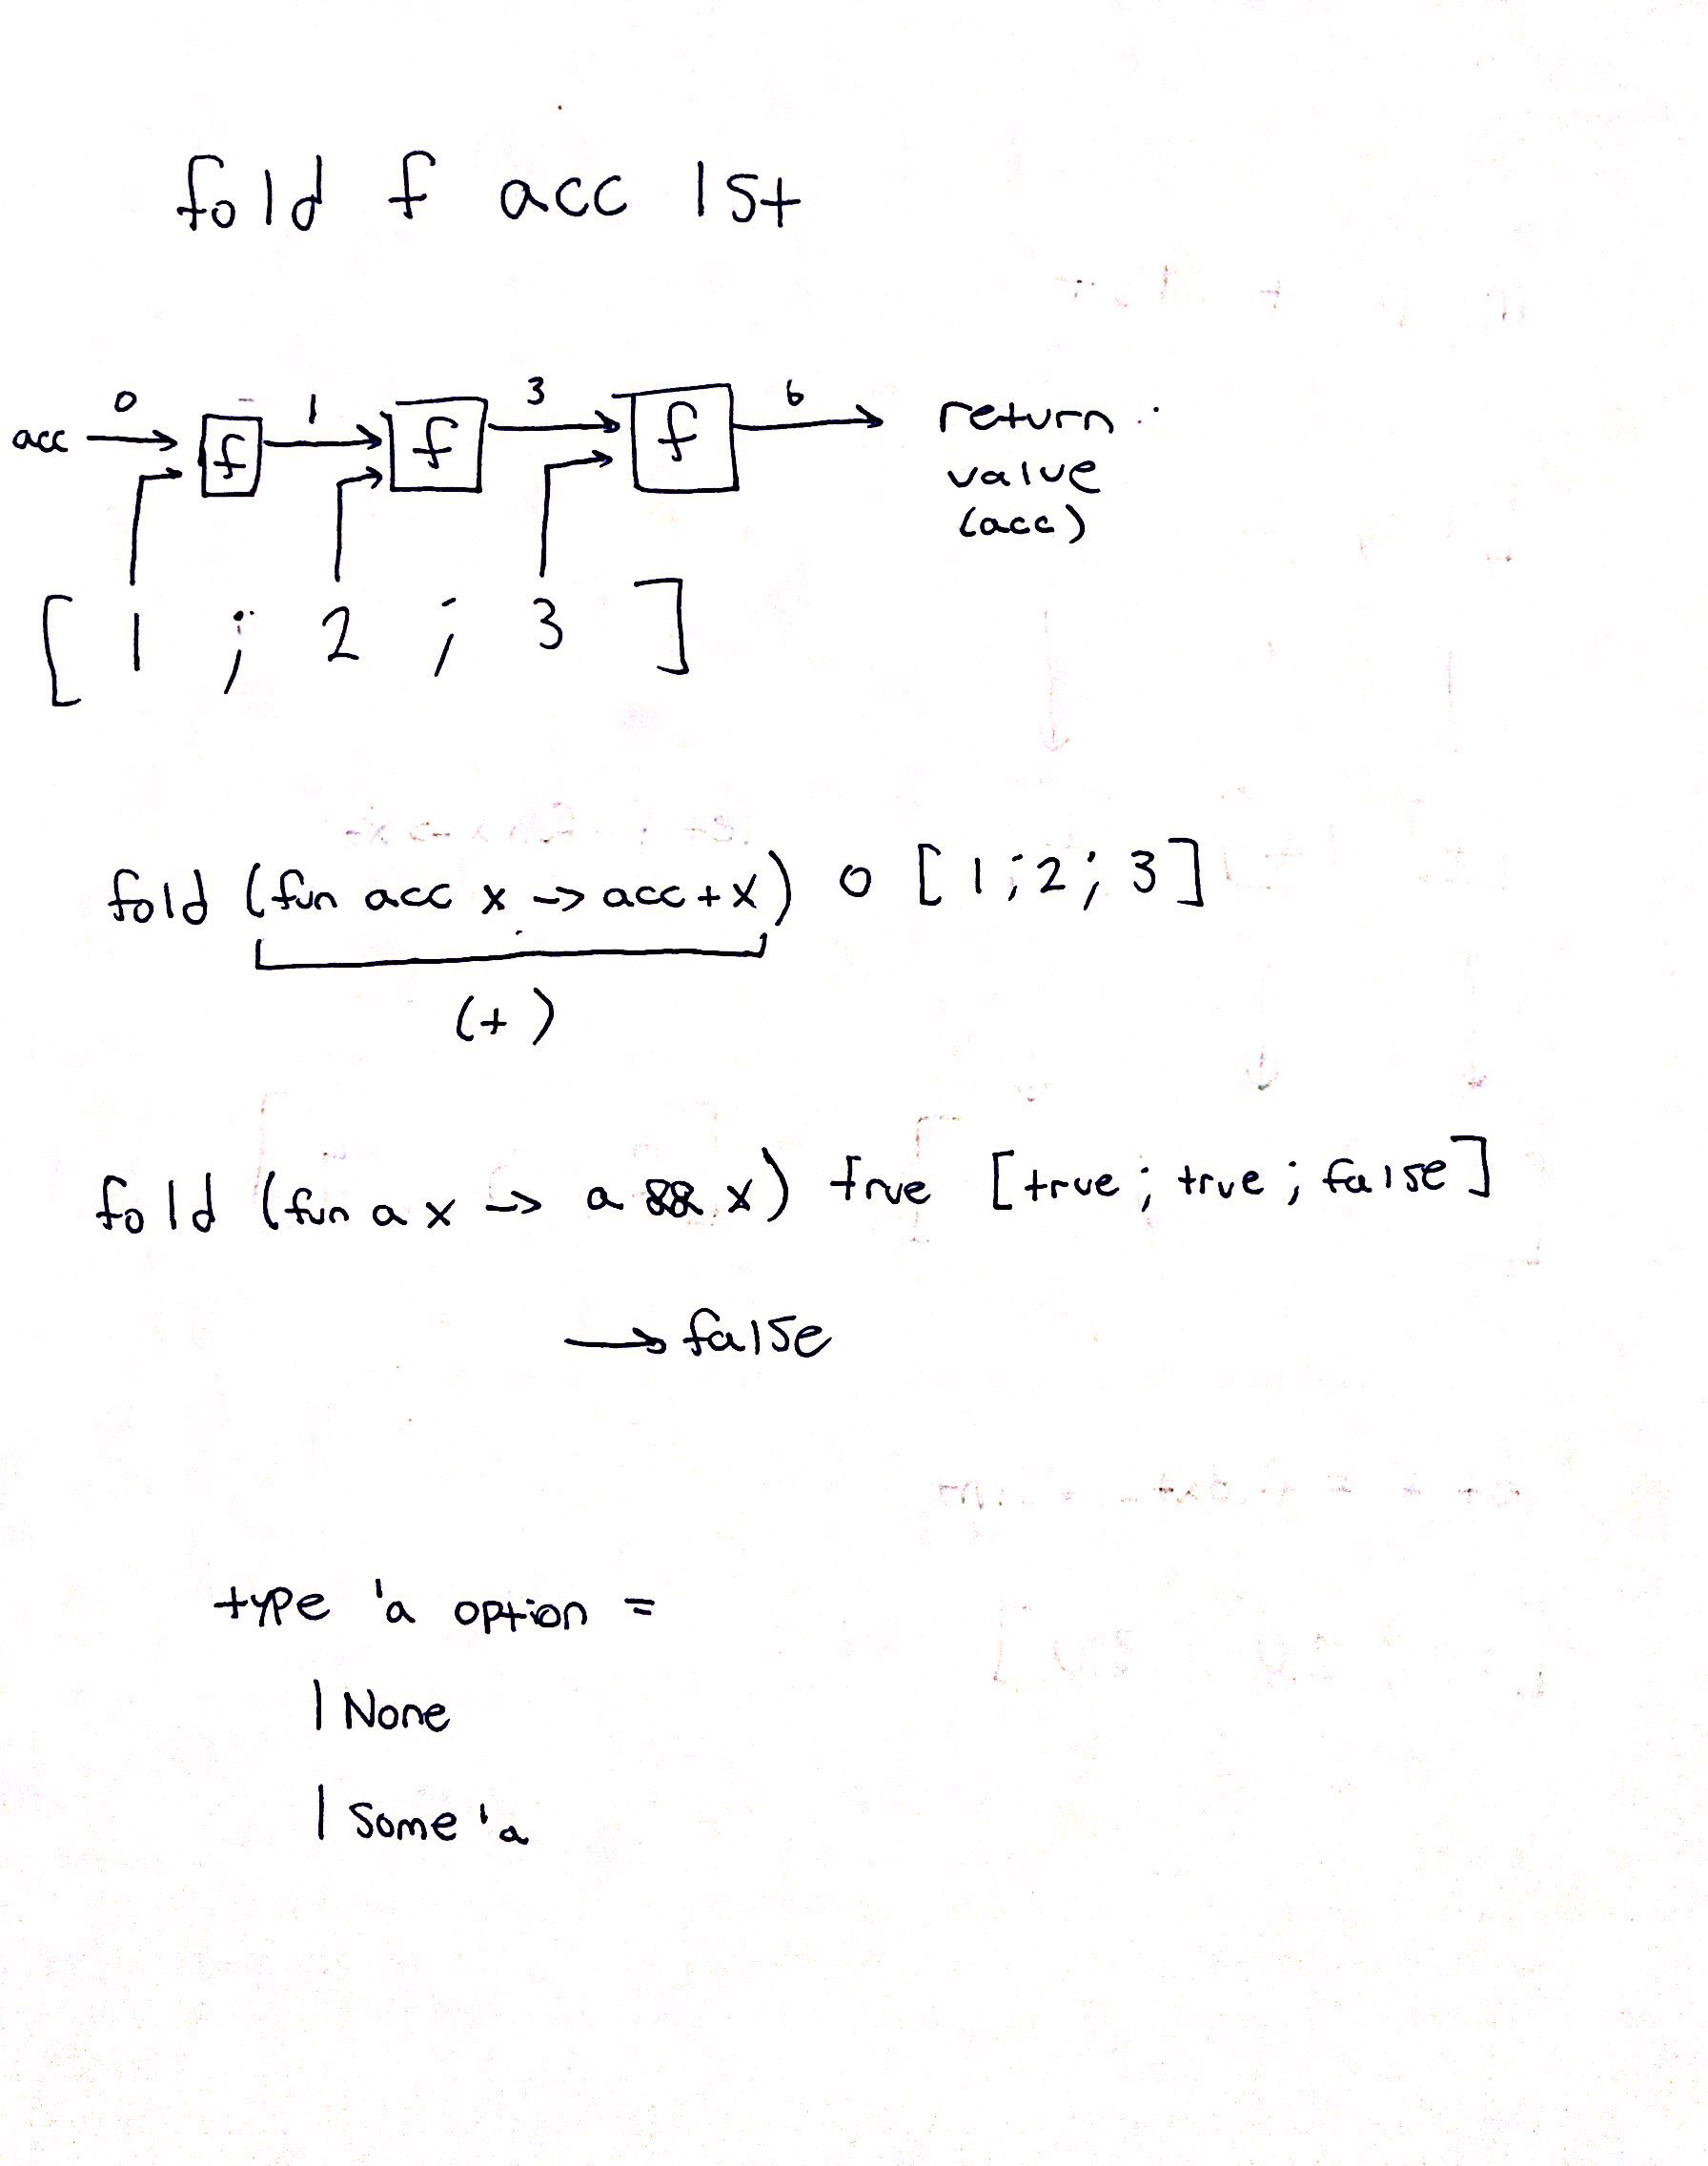 fold f acc lst
0 1 3 6
acc f f f return
value
(acc)
[ 1 ; 2 ; 3 ]
fold (fun acc x -> acc+x) 0 [1;2;3]
(+)
fold (fun a x -> a && x) true [true; true; false]
→ false
type 'a option =
| None
| Some 'a